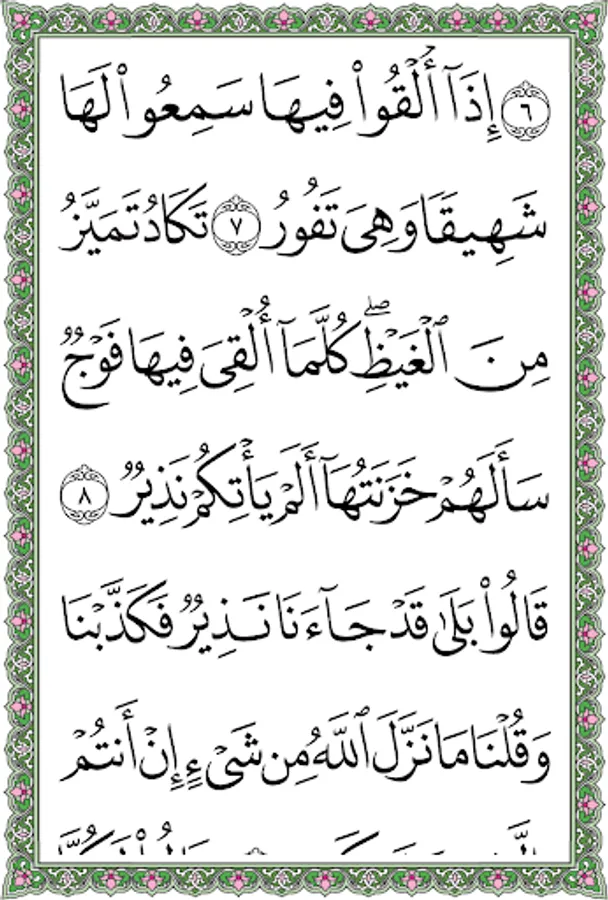 ٦ إِذَآ أُلْقُوا۟ فِيهَا سَمِعُوا۟ لَهَا
شَهِيقًا وَهِىَ تَفُورُ ٧ تَكَادُ تَمَيَّزُ
مِنَ ٱلْغَيْظِ ۖ كُلَّمَآ أُلْقِىَ فِيهَا فَوْجٌ
سَأَلَهُمْ خَزَنَتُهَآ أَلَمْ يَأْتِكُمْ نَذِيرٌ ٨
قَالُوا۟ بَلَىٰ قَدْ جَآءَنَا نَذِيرٌ فَكَذَّبْنَا
وَقُلْنَا مَا نَزَّلَ ٱللَّهُ مِن شَىْءٍ إِنْ أَنتُمْ